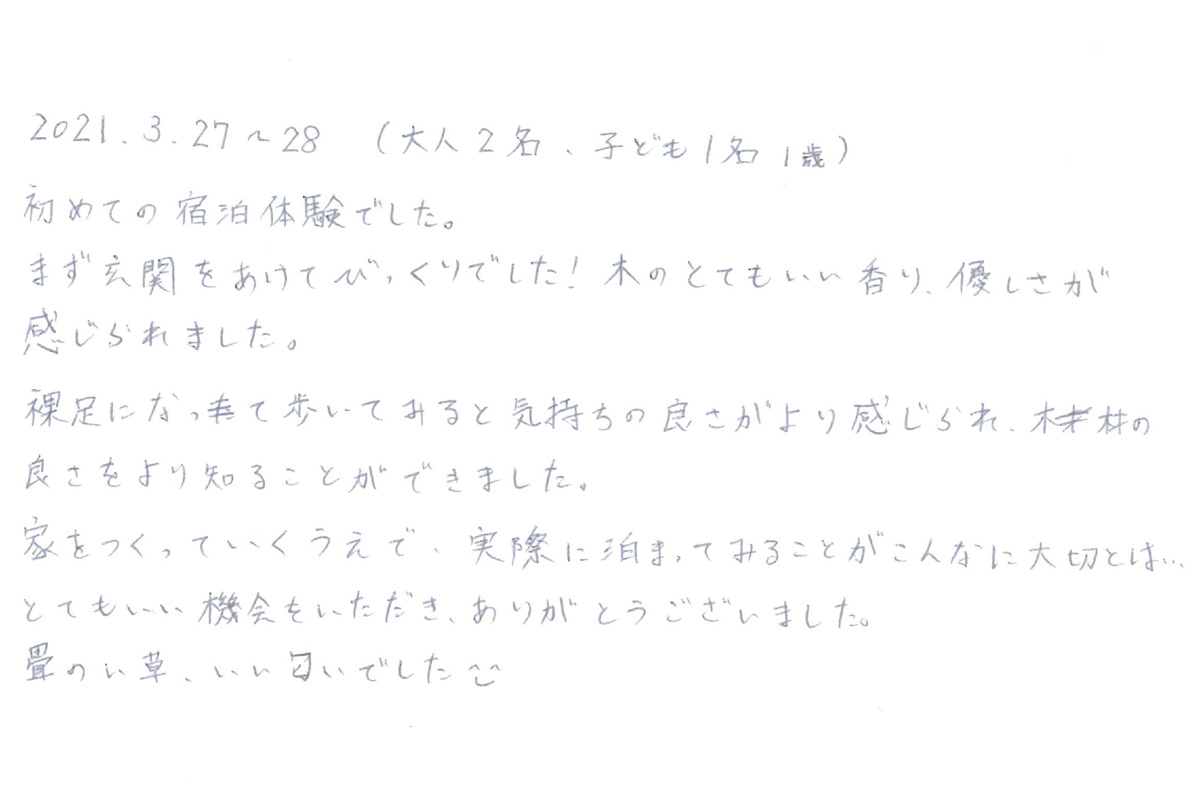 2021.3.27〜28 （大人2名、子ども1名 1歳）
初めての宿泊体験でした。
まず玄関をあけてびっくりでした！木のとてもいい香り、優しさが
感じられました。
裸足になって歩いてみると気持ちの良さがより感じられ、木材の
良さをより知ることができました。
家をつくっていくうえで、実際に泊まってみることがこんなに大切とは…
とてもいい機会をいただき、ありがとうございました。
畳のい草、いい匂いでした